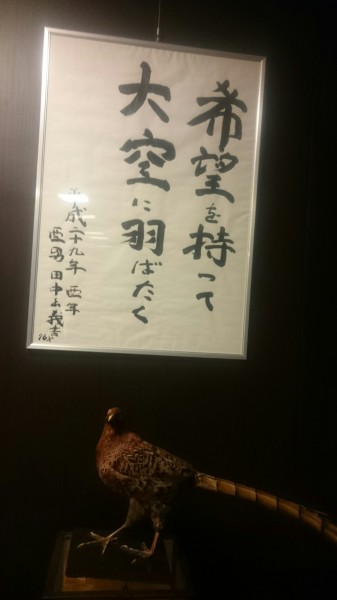 希望を持って
大空に羽ばたく
平成二十九年 酉年
酉男 田中